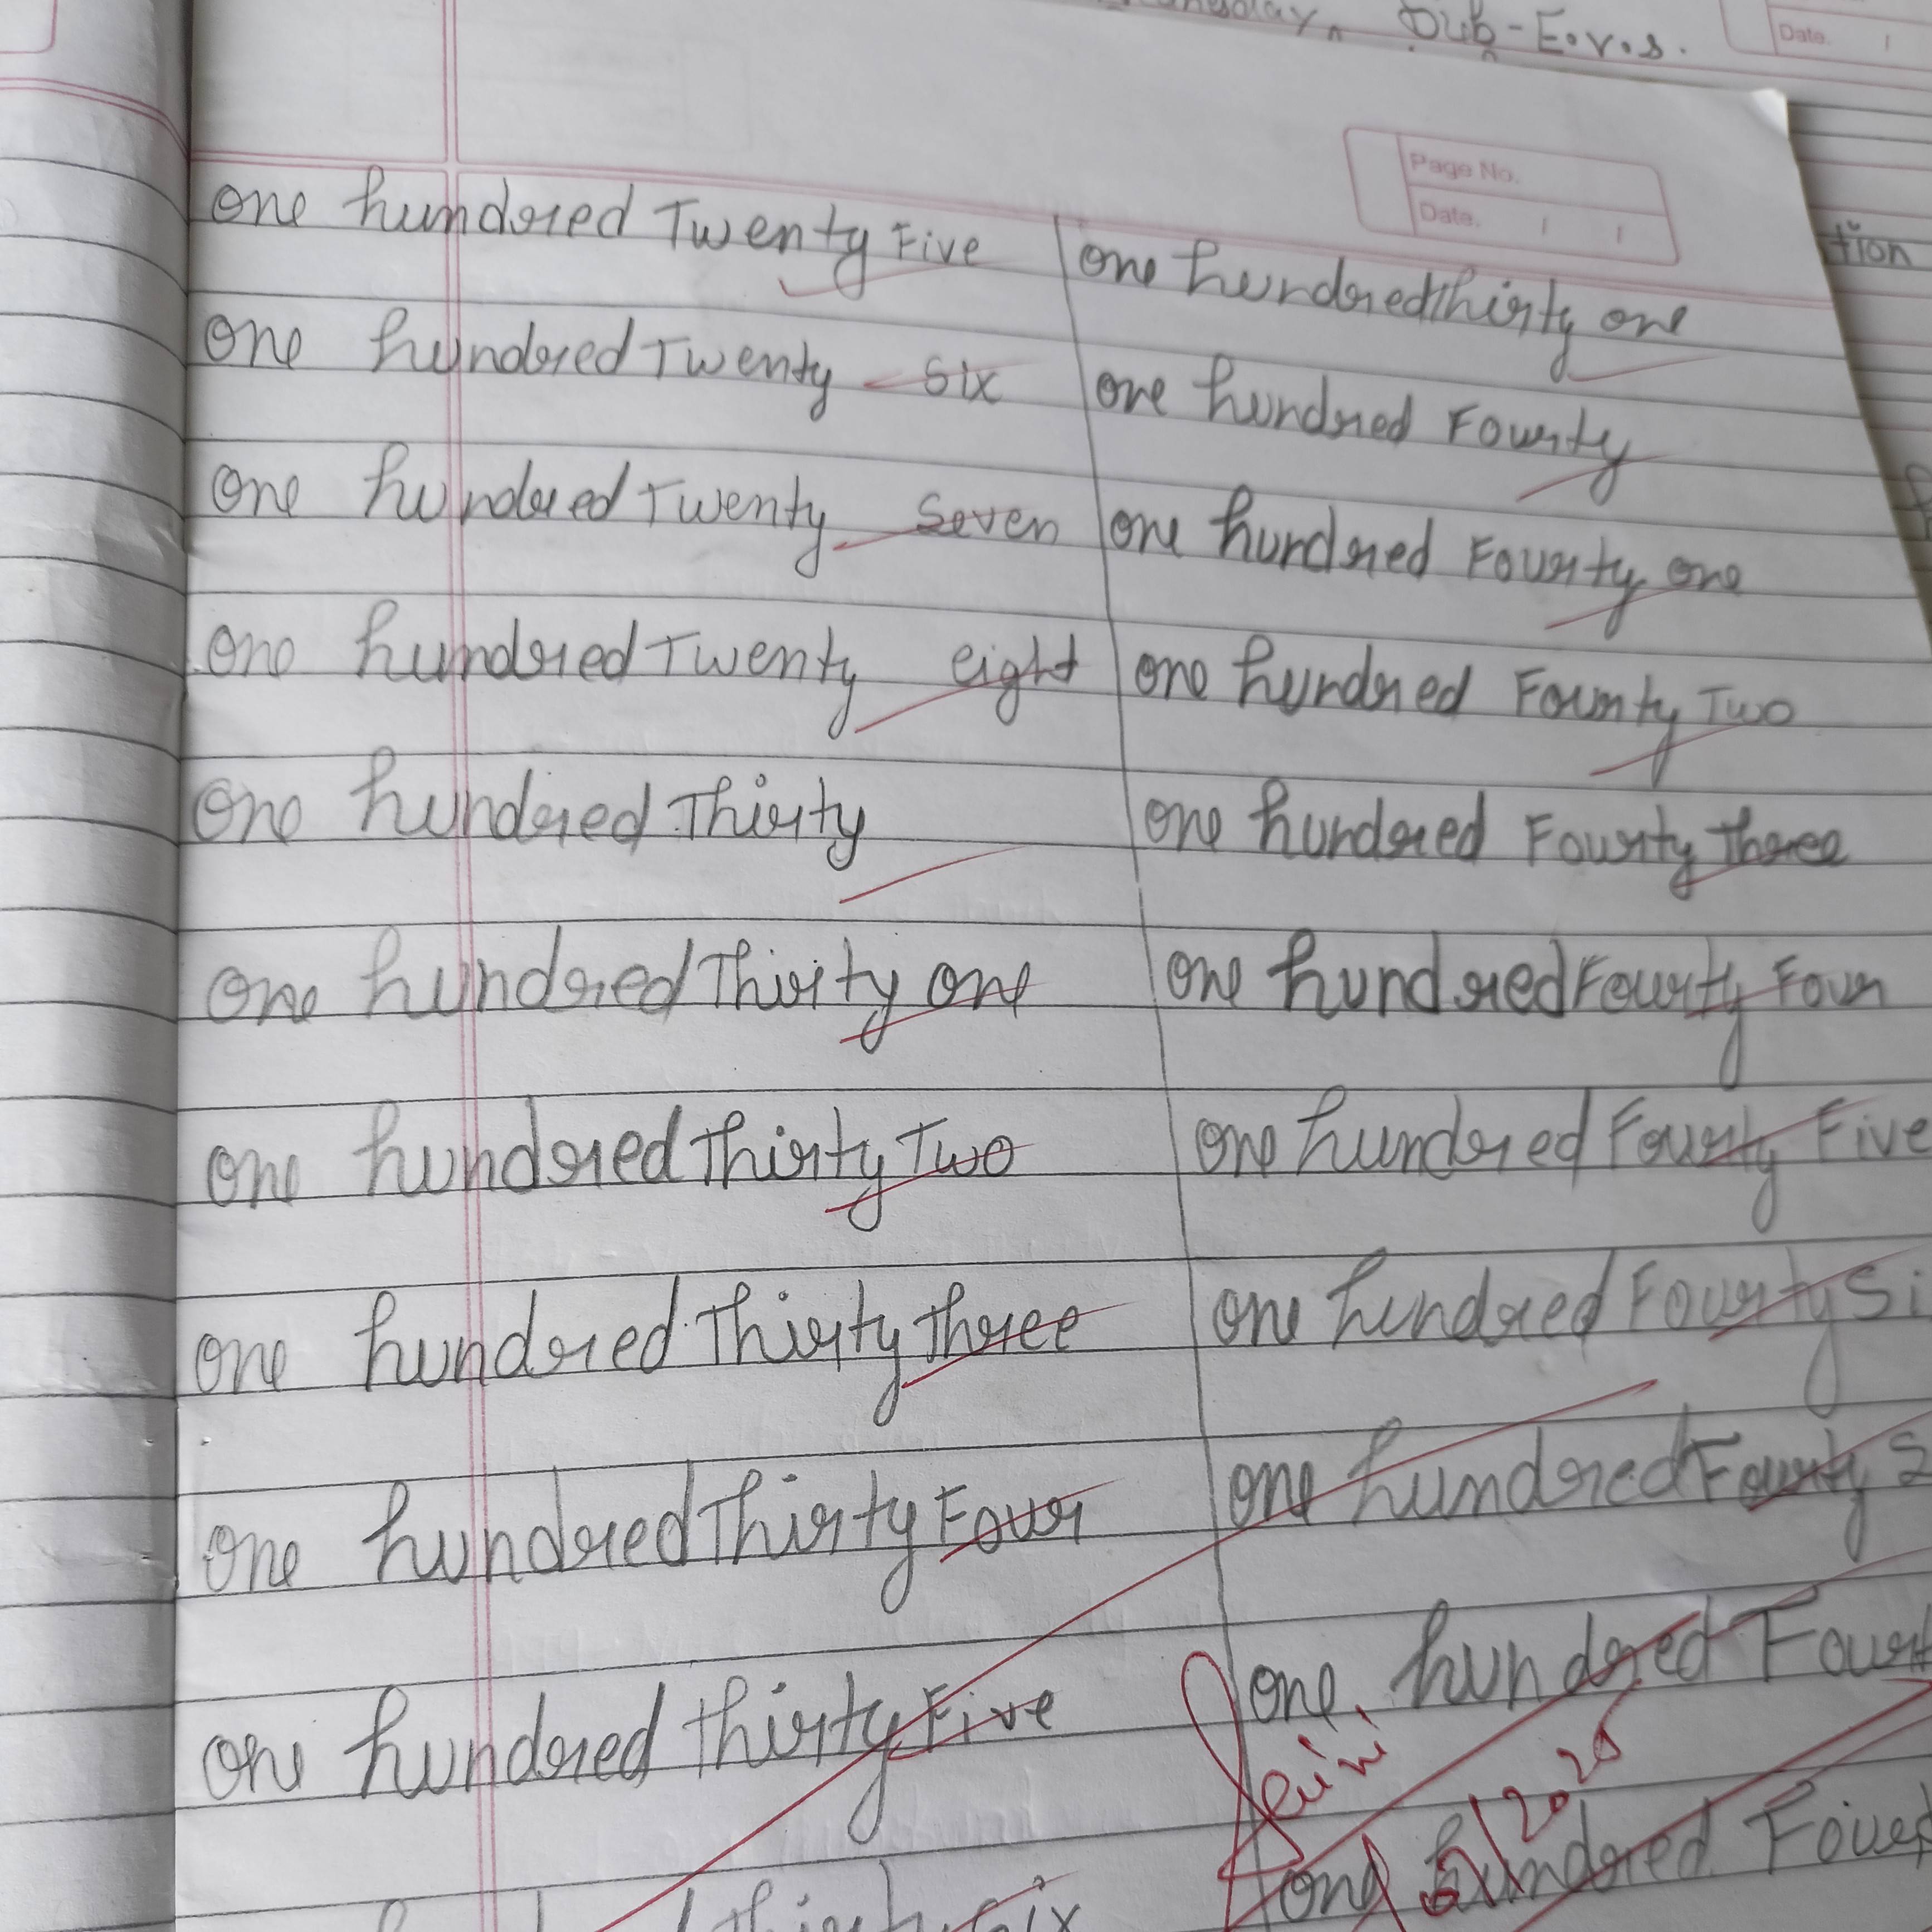 Sub-E.v.s.
Date.
Page No.
Date.
tion
one hundred Twenty Five
one hundred Twenty Six
one hundred Twenty Seven
one hundred Twenty eight
one hundred Thirty
one hundred Thirty one
one hundred Thirty Two
one hundred Thirty Three
one hundred Thirty Four
one hundred Thirty Five
one hundred thirty one
one hundred Fourty
one hundred Fourty one
one hundred Fourty Two
one hundred Fourty Three
one hundred Fourty Four
one hundred Fourty Five
one hundred Fourty Si
one hundred Fourty S
one hundred Fourt
one hundred